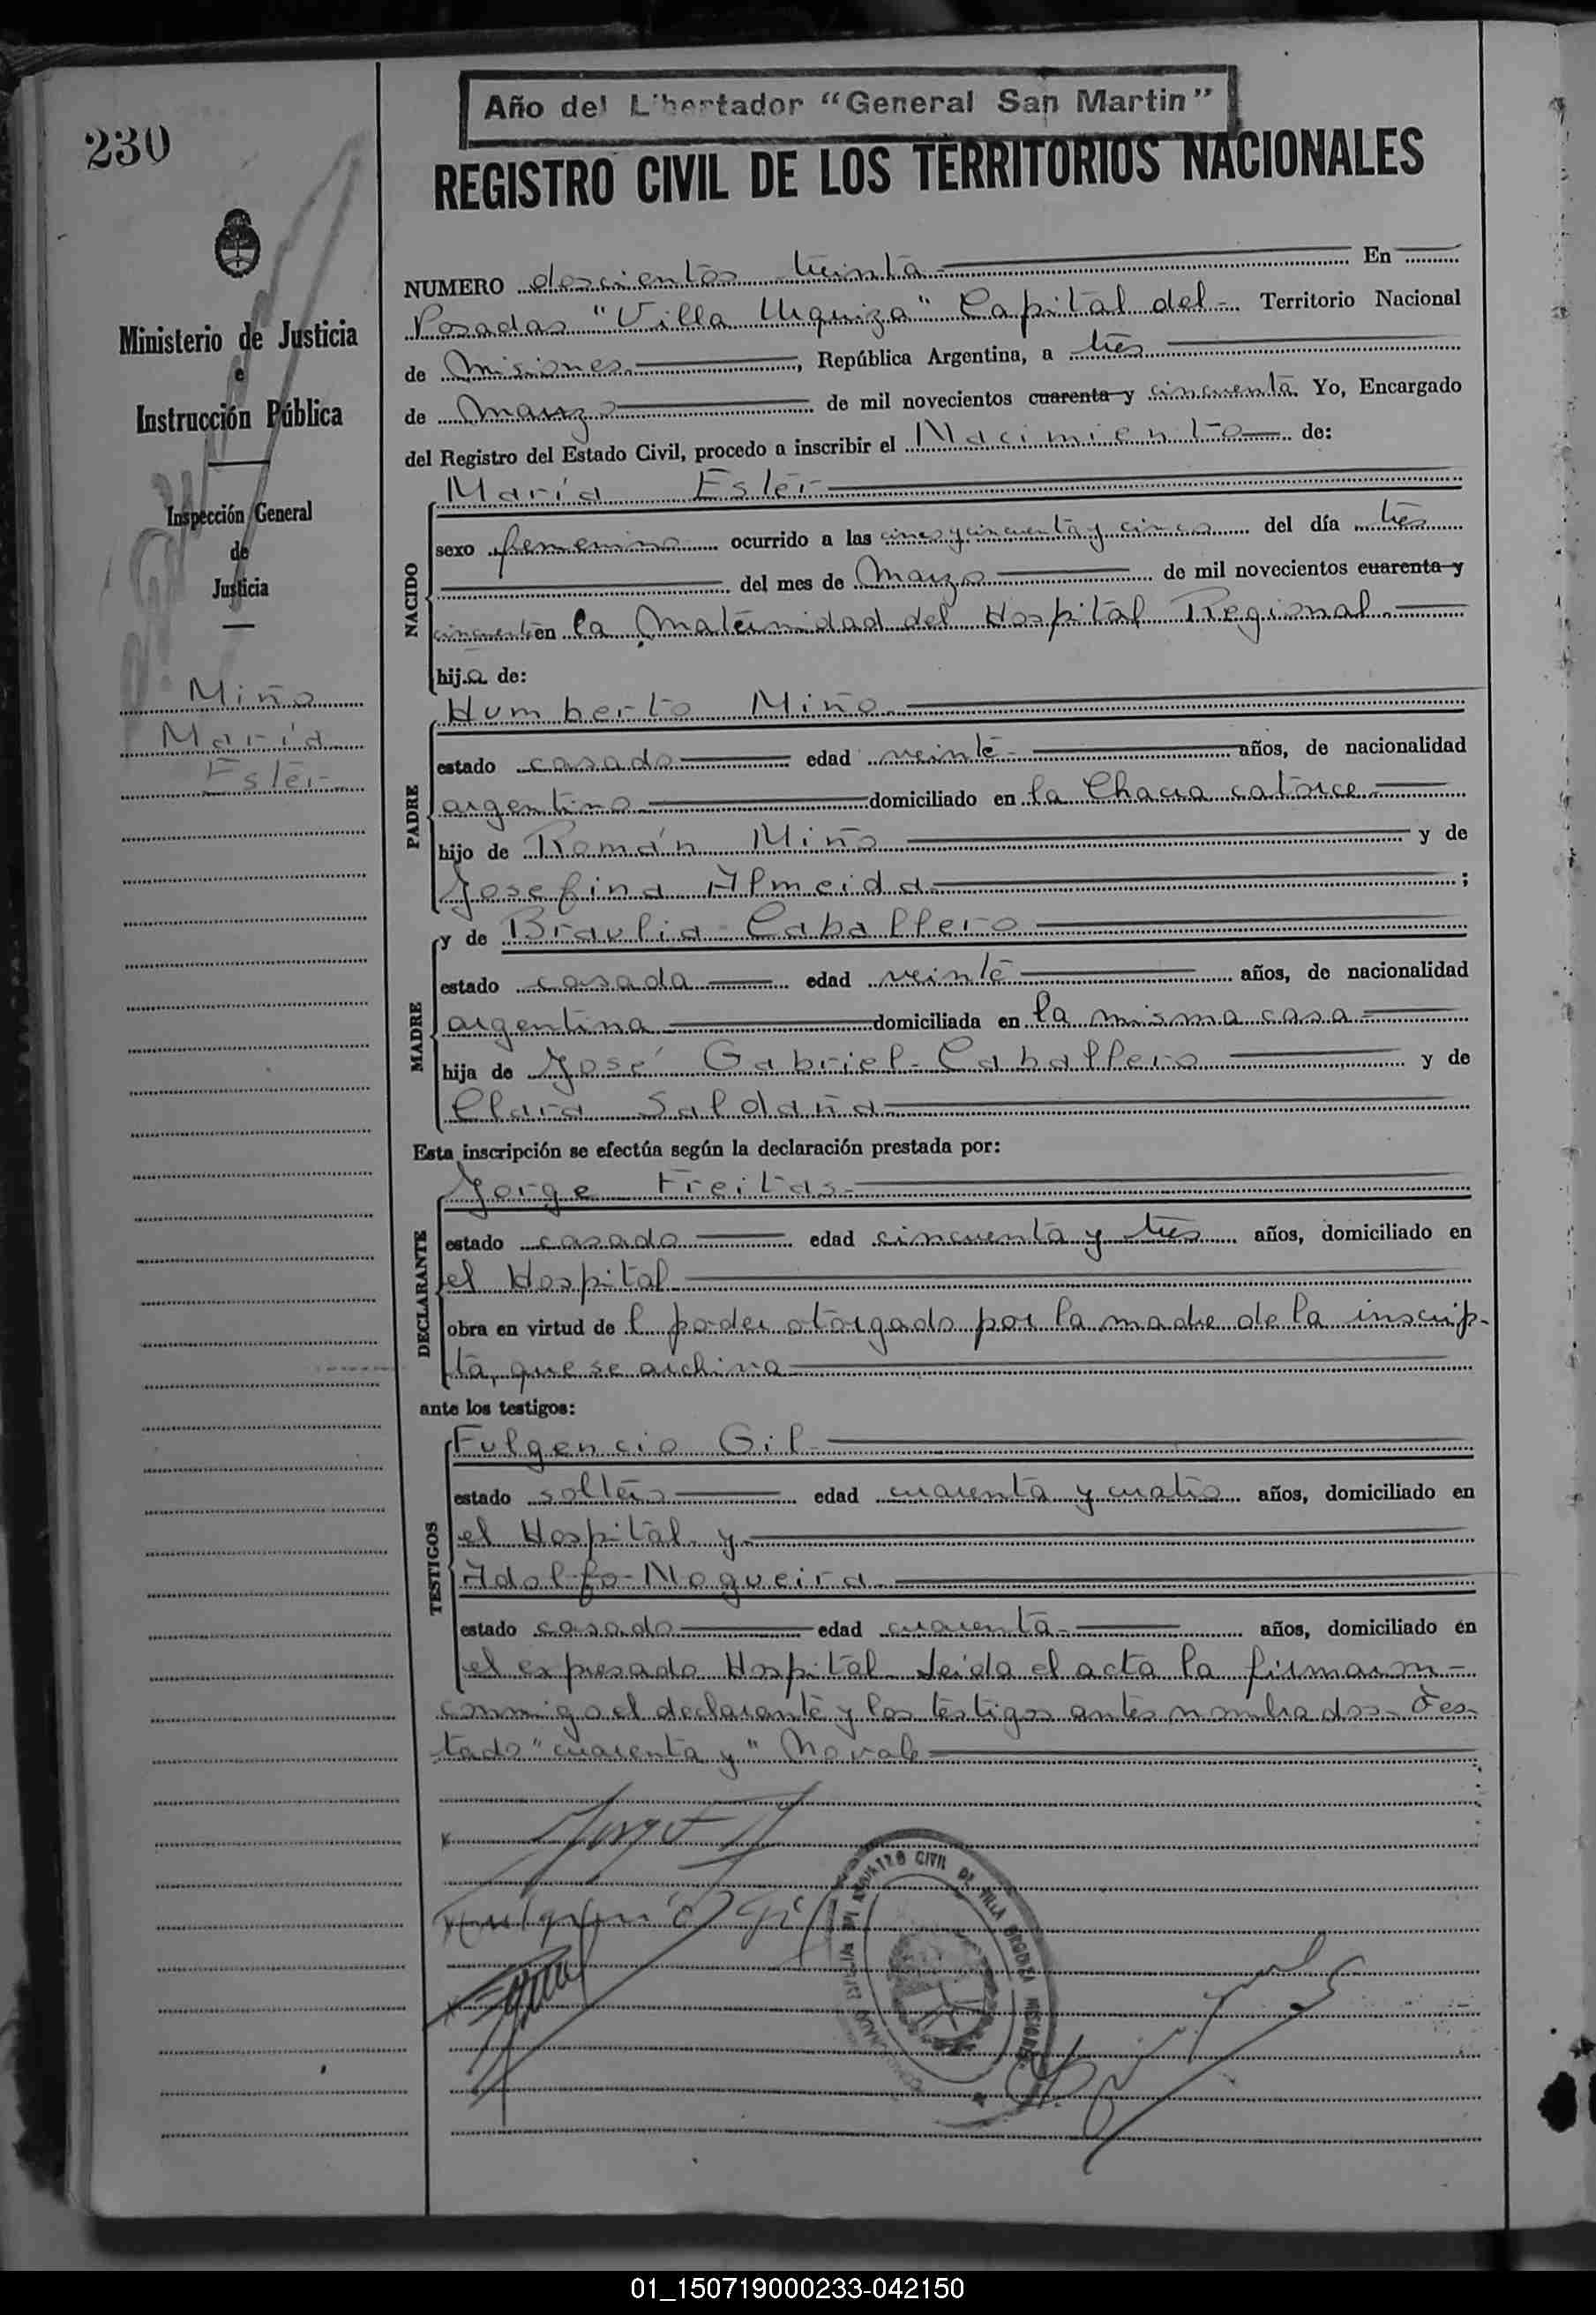 230
Año del Libertador "General San Martin"
REGISTRO CIVIL DE LOS TERRITORIOS NACIONALES
Ministerio de Justicia
e
Instrucción Pública
Inspección General
de
Justicia
Miño
María
Ester
NUMERO doscientos treinta En
Posadas "Villa Urquiza" Capital del Territorio Nacional
de Misiones, República Argentina, a tres
de Marzo de mil novecientos cuarenta y cincuenta Yo, Encargado
del Registro del Estado Civil, procedo a inscribir el Nacimiento de:
NACIDO
María Ester
sexo femenino ocurrido a las cinco y cincuenta y cinco del día tres
del mes de Marzo de mil novecientos cuarenta y
cincuenta en la Maternidad del Hospital Regional
hija de:
PADRE
Humberto Miño
estado casado edad veinte años, de nacionalidad
argentino domiciliado en la Chacra catorce
hijo de Román Miño y de
Josefina Almeida;
MADRE
y de Braulia Caballero
estado casada edad veinte años, de nacionalidad
argentina domiciliada en la misma casa
hija de José Gabriel Caballero y de
Clara Saldaña
Esta inscripción se efectúa según la declaración prestada por:
DECLARANTE
Jorge Freitas
estado casado edad cincuenta y tres años, domiciliado en
el Hospital
obra en virtud de l poder otorgado por la madre de la inscrip-
ta, que se archiva
ante los testigos:
TESTIGOS
Fulgencio Gil
estado soltero edad cuarenta y cuatro años, domiciliado en
el Hospital y
Adolfo Nogueira
estado casado edad cuarenta años, domiciliado en
el expresado Hospital. Leída el acta la firmaron
conmigo el declarante y los testigos antes nombrados. Tes-
tado "cuarenta y" No vale
REGISTRO CIVIL DE VILLA URQUIZA MISIONES
01_150719000233-042150